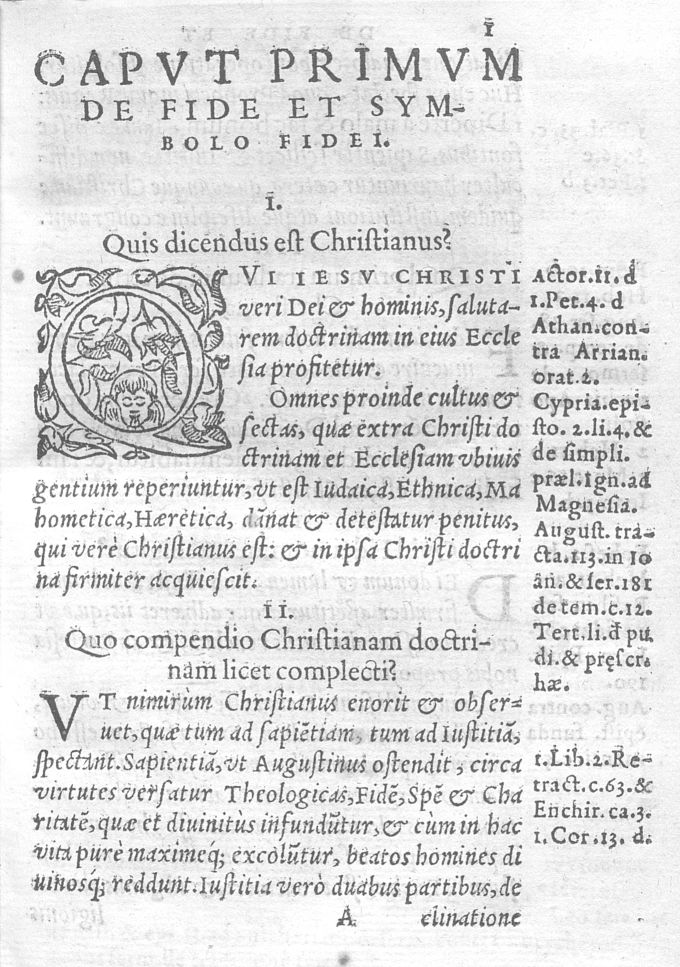 I
CAPVT PRIMVM
DE FIDE ET SYM-
BOLO FIDEI.
I.
Quis dicendus est Christianus?
QVI IESV CHRISTI
veri Dei & hominis, saluta-
rem doctrinam in eius Eccle
sia profitetur.
Omnes proinde cultus &
sectas, quæ extra Christi do
ctrinam et Ecclesiam vbiuis
gentium reperiuntur, vt est Iudaica, Ethnica, Ma
hometica, Hæretica, dānat & detestatur penitus,
qui verè Christianus est: & in ipsa Christi doctri
na firmiter acquiescit.
Actor. 11. d
1. Pet. 4. d
Athan. con-
tra Arrian.
orat. 2.
Cypria. epi-
sto. 2. li. 4. &
de simpli.
præl. Ign. ad
Magnesia.
August. tra-
cta. 113. in Io
ān. & ser. 181
de tem. c. 12.
Tert. li. đ pu
di. & pręscr.
hæ.
II.
Quo compendio Christianam doctri-
nam licet complecti?
VT nimirùm Christianus enorit & obser-
uet, quæ tum ad sapiētiam, tum ad Iustitiā,
spectant. Sapientiā, vt Augustinus ostendit, circa
virtutes versatur Theologicas, Fidē, Spē & Cha
ritatē, quæ et diuinitùs infundūtur, & cùm in hac
vita purè maximeq́; excolūtur, beatos homines di
uinosq́; reddunt. Iustitia verò duabus partibus, de
1. Lib. 2. Re-
tract. c. 63. &
Enchir. ca. 3.
1. Cor. 13. d.
A
elinatione